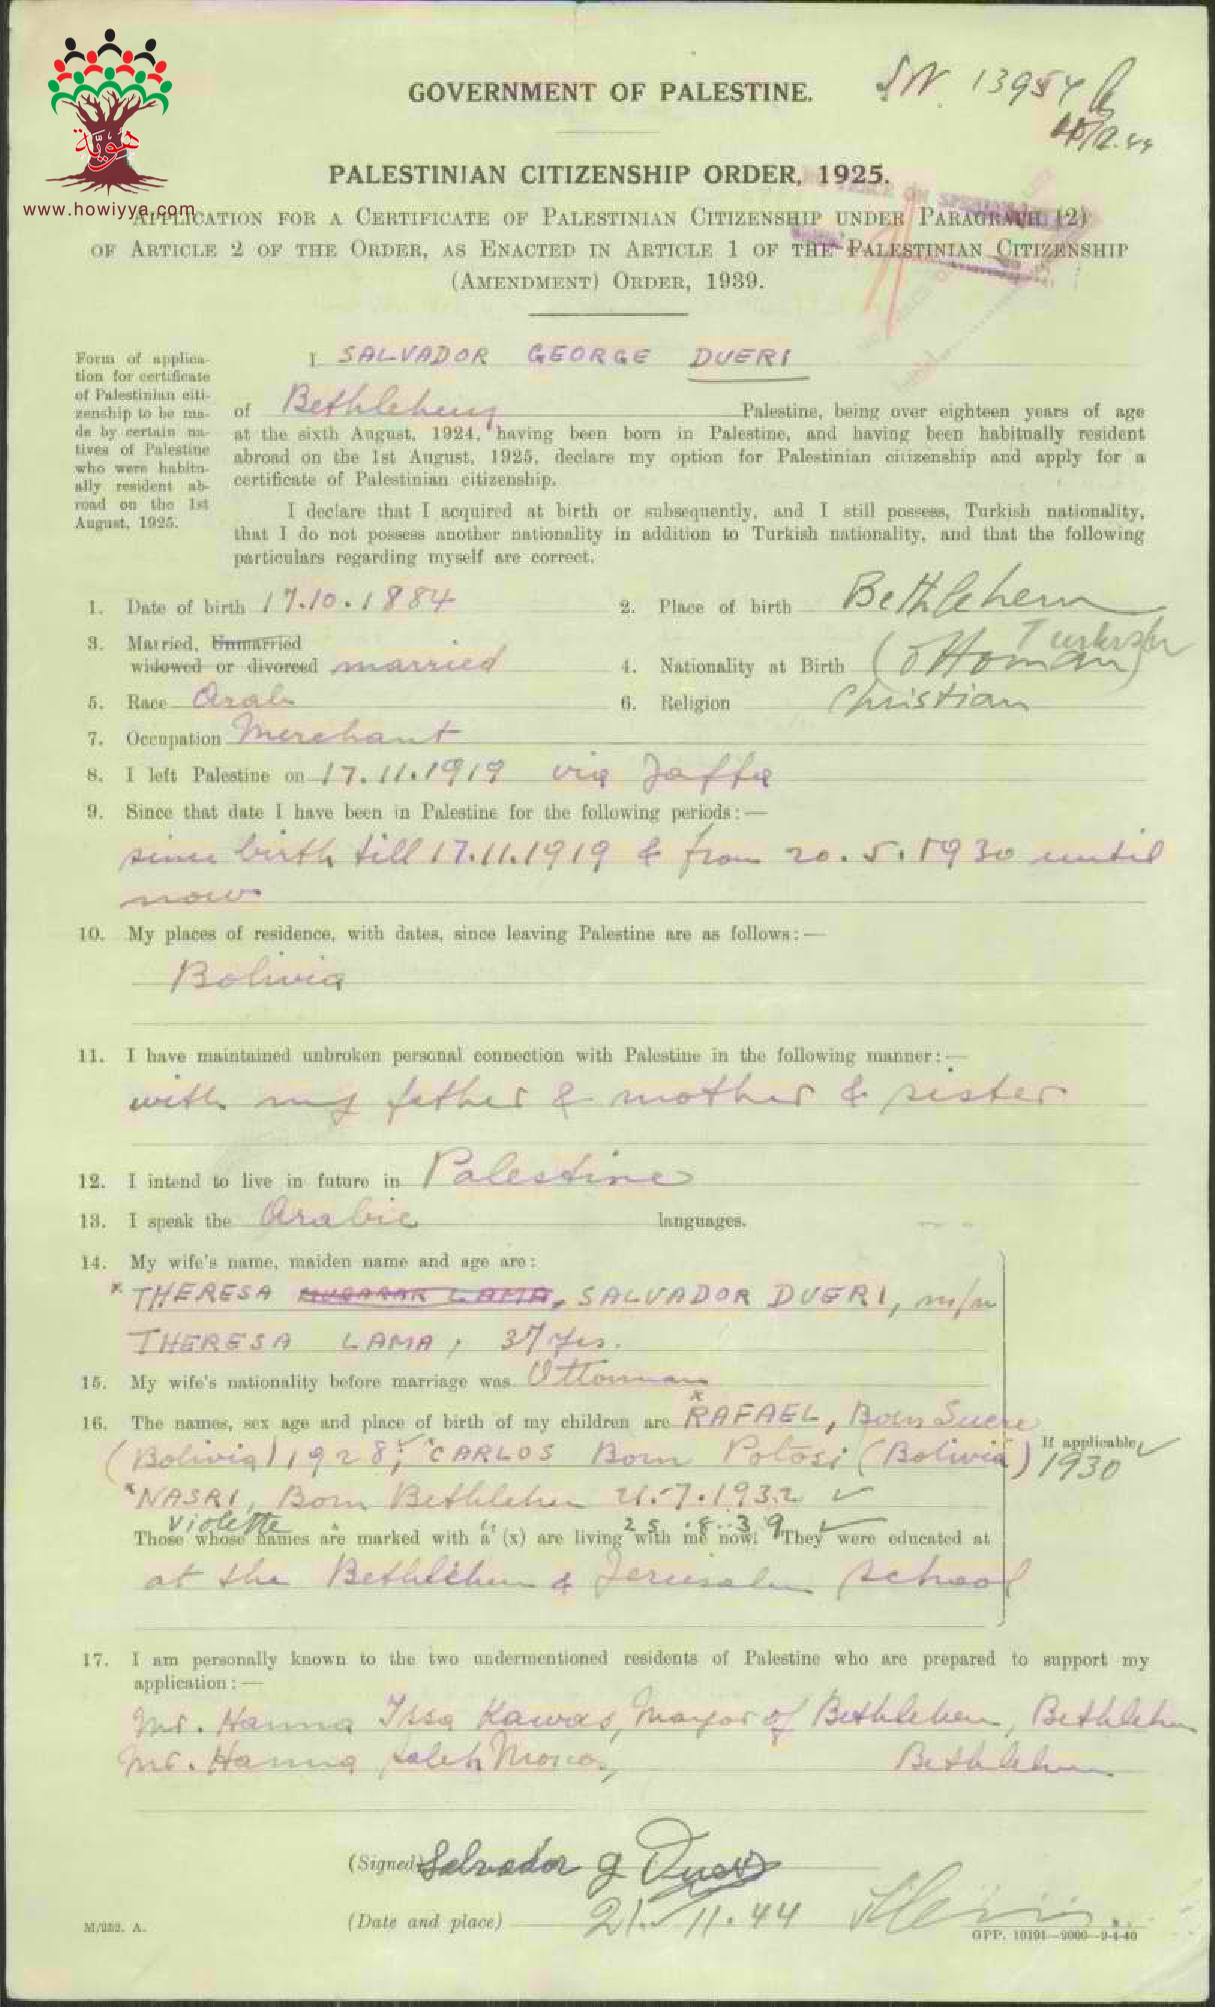 هويّة
www.howiyya.com
GOVERNMENT OF PALESTINE.
SN 13954
PALESTINIAN CITIZENSHIP ORDER, 1925.
APPLICATION FOR A CERTIFICATE OF PALESTINIAN CITIZENSHIP UNDER PARAGRAPH (2)
OF ARTICLE 2 OF THE ORDER, AS ENACTED IN ARTICLE 1 OF THE PALESTINIAN CITIZENSHIP
(AMENDMENT) ORDER, 1939.
Form of applica-
tion for certificate
of Palestinian citi-
zenship to be ma-
de by certain na-
tives of Palestine
who were habitu-
ally resident ab-
road on the 1st
August, 1925.
I SALVADOR GEORGE DUERI
of Bethlehem Palestine, being over eighteen years of age
at the sixth August, 1924, having been born in Palestine, and having been habitually resident
abroad on the 1st August, 1925, declare my option for Palestinian citizenship and apply for a
certificate of Palestinian citizenship.
I declare that I acquired at birth or subsequently, and I still possess, Turkish nationality,
that I do not possess another nationality in addition to Turkish nationality, and that the following
particulars regarding myself are correct.
1. Date of birth 17.10.1884 2. Place of birth Bethlehem
3. Married, Unmarried
widowed or divorced married 4. Nationality at Birth (Ottoman) Turkish
5. Race Arab 6. Religion Christian
7. Occupation Merchant
8. I left Palestine on 17.11.1919 via Jaffa
9. Since that date I have been in Palestine for the following periods:—
since birth till 17.11.1919 & from 20.5.1930 until
now
10. My places of residence, with dates, since leaving Palestine are as follows:—
Bolivia
11. I have maintained unbroken personal connection with Palestine in the following manner:—
with my father & mother & sister
12. I intend to live in future in Palestine
13. I speak the Arabic languages.
14. My wife's name, maiden name and age are:
x THERESA MUBARAK LAMA, SALVADOR DUERI, m/n
THERESA LAMA, 37 yrs.
15. My wife's nationality before marriage was Ottoman
16. The names, sex age and place of birth of my children are x RAFAEL, Born Sucre
(Bolivia) 1928, x CARLOS Born Potosi (Bolivia) 1930
If applicable
x NASRI, Born Bethlehem 21.7.1932
Violette " 25.8.39
Those whose names are marked with a (x) are living with me now. They were educated at
at the Bethlehem & Jerusalem school
17. I am personally known to the two undermentioned residents of Palestine who are prepared to support my
application:—
Mr. Hanna Issa Kawas, Mayor of Bethlehem, Bethlehem
Mr. Hanna Saleh Bethlehem
(Signed) Salvador G Dueri
(Date and place) 21.11.44
M/252. A.
GPP. 10191—9000—2-4-40